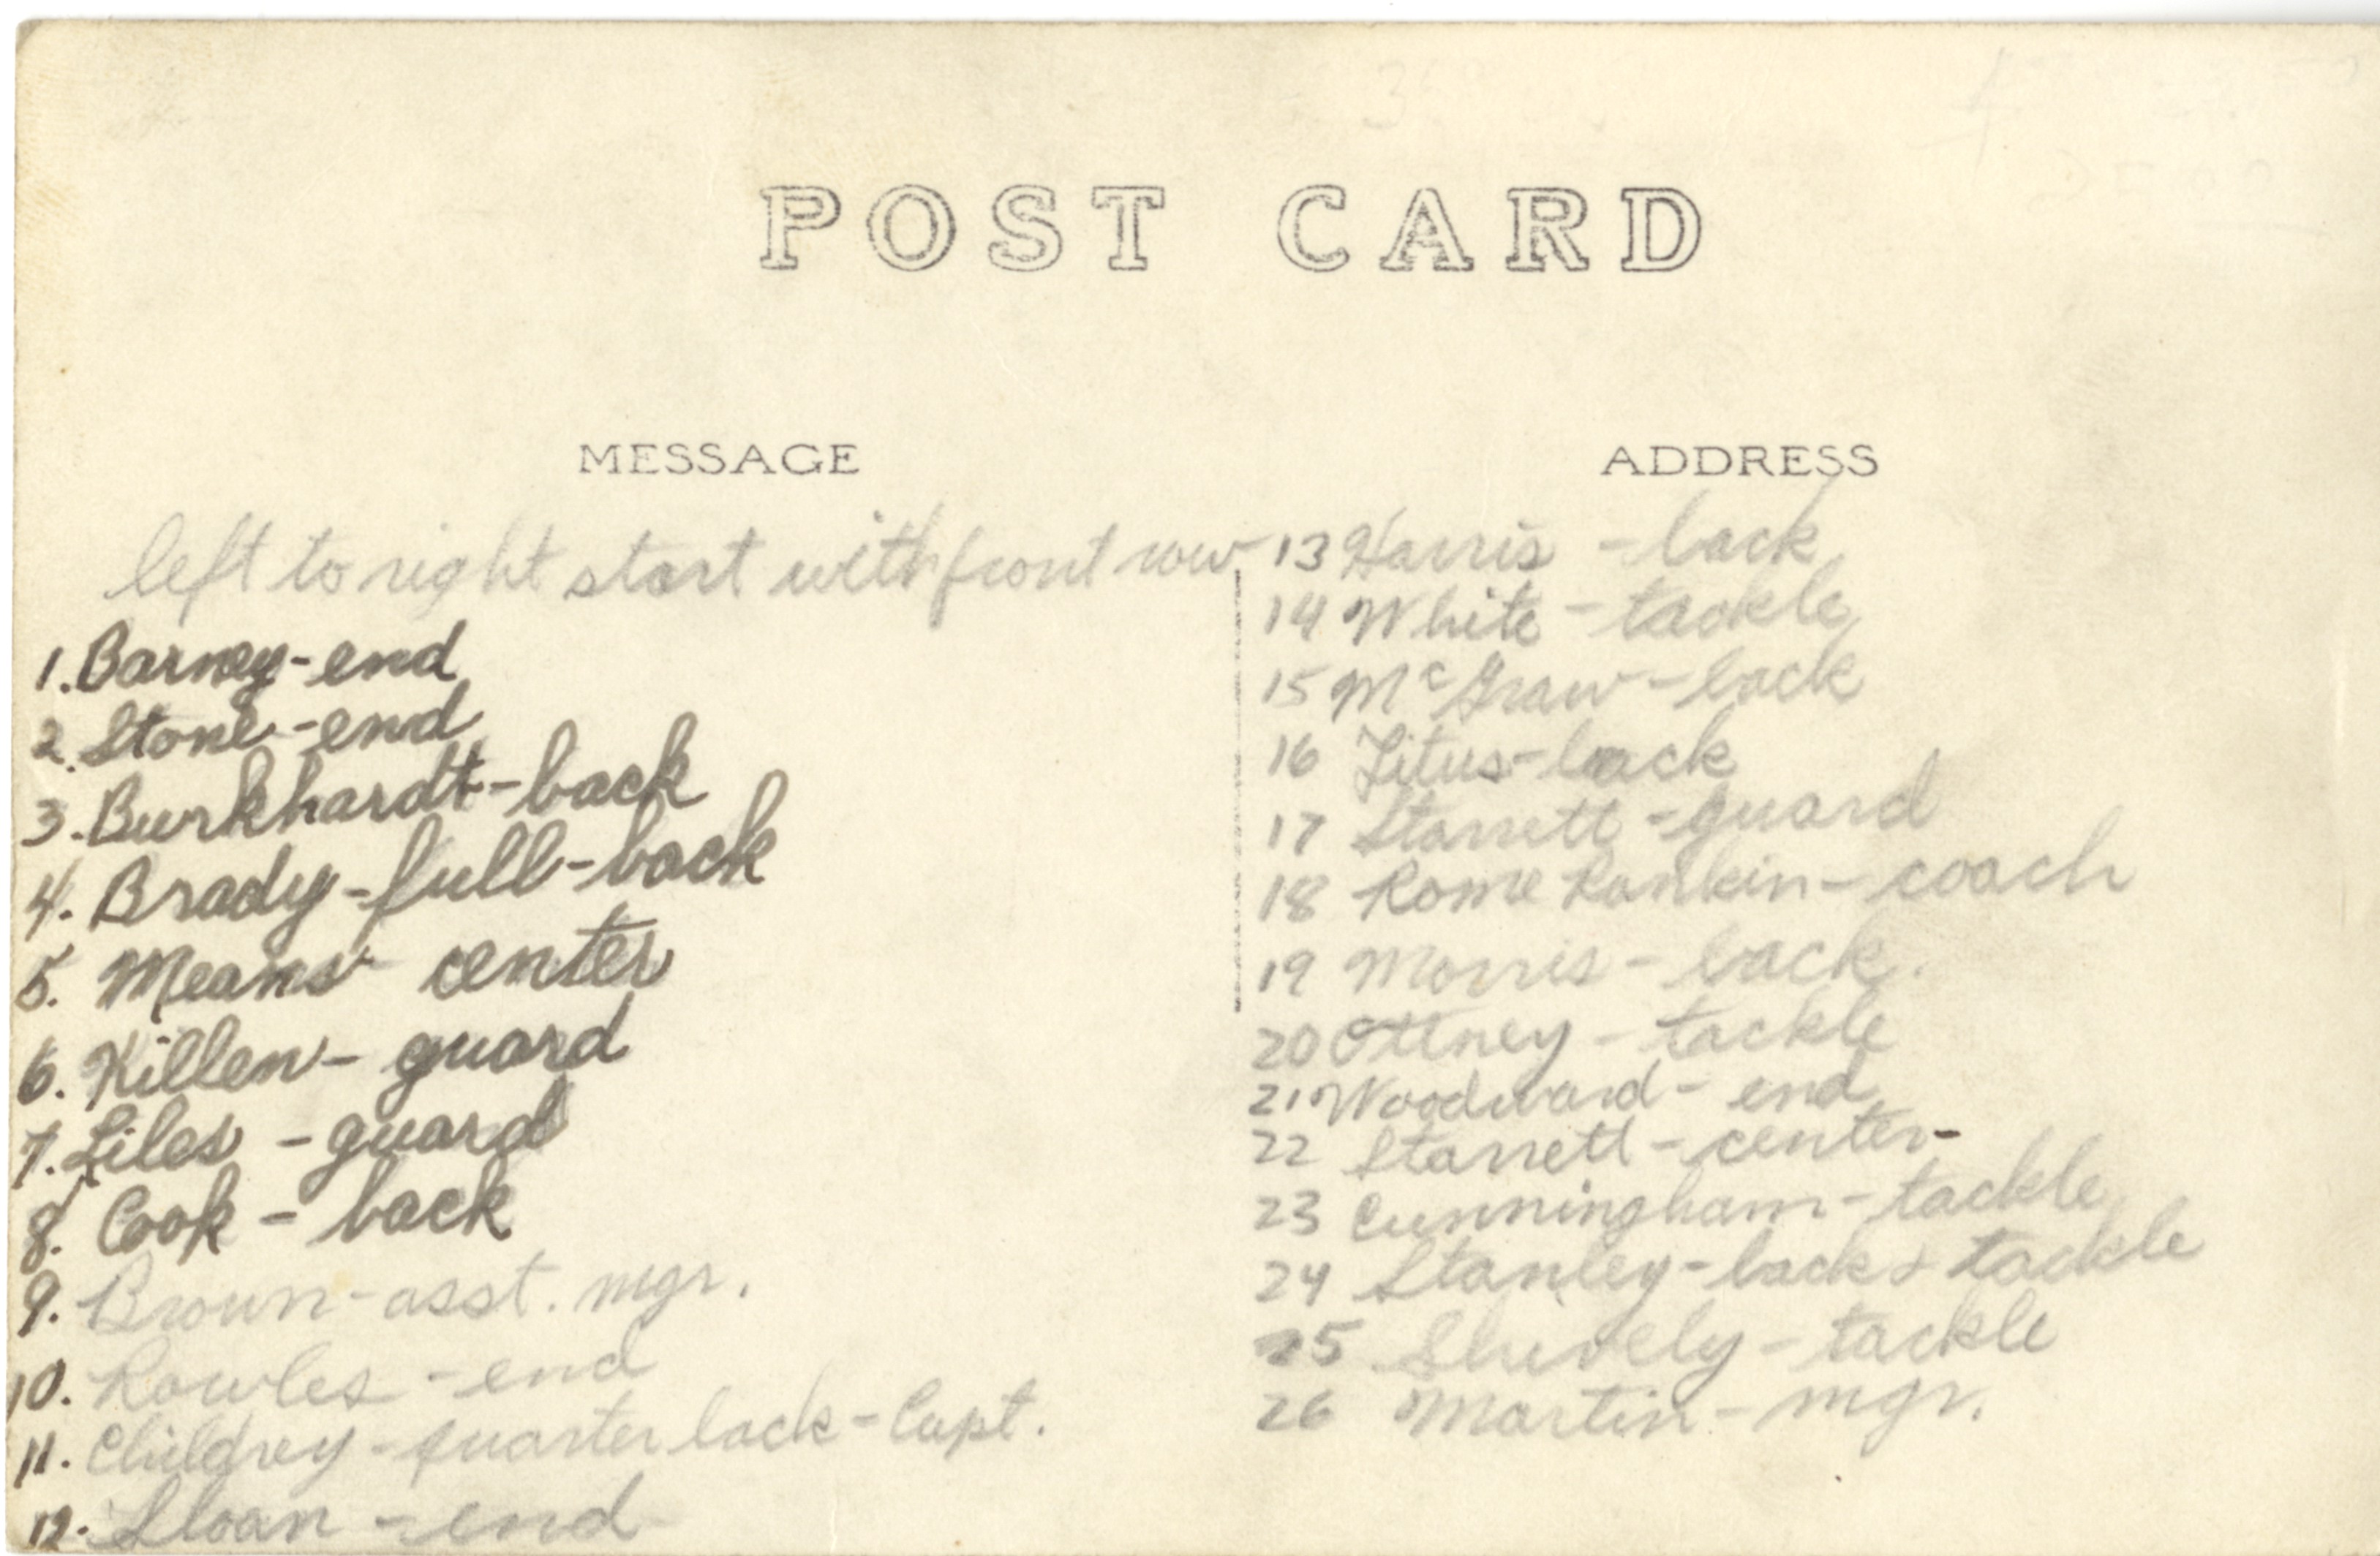 POST CARD
MESSAGE
left to right start with front row
1. Barney - end
2. Stone - end
3. Burkhardt - back
4. Brady - full-back
5. Means - center
6. Killen - guard
7. Liles - guard
8. Cook - back
9. Brown - asst. mgr.
10. Rowles - end
11. Childrey - quarter back - Capt.
12. Sloan - end
ADDRESS
13 Harris - back
14 White - tackle
15 McGraw - back
16 Titus - back
17 Starrett - guard
18 Rome Rankin - coach
19 Morris - back.
20 Ottney - tackle
21 Woodward - end
22 Starrett - center -
23 Cunningham - tackle
24 Stanley - back & tackle
25 Shively - tackle
26 Martin - mgr.